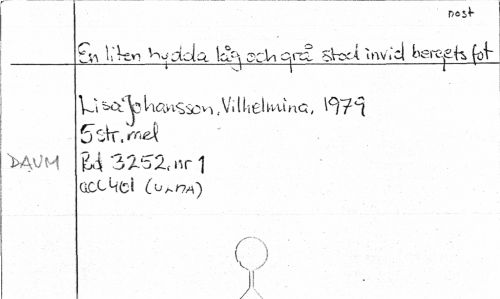 nost
En liten hydda låg och grå stod invid bergets fot
Lisa Johansson, Vilhelmina, 1979
5 str, mel
DAUM Bd 3252, nr 1
acc 401 (ULMA)